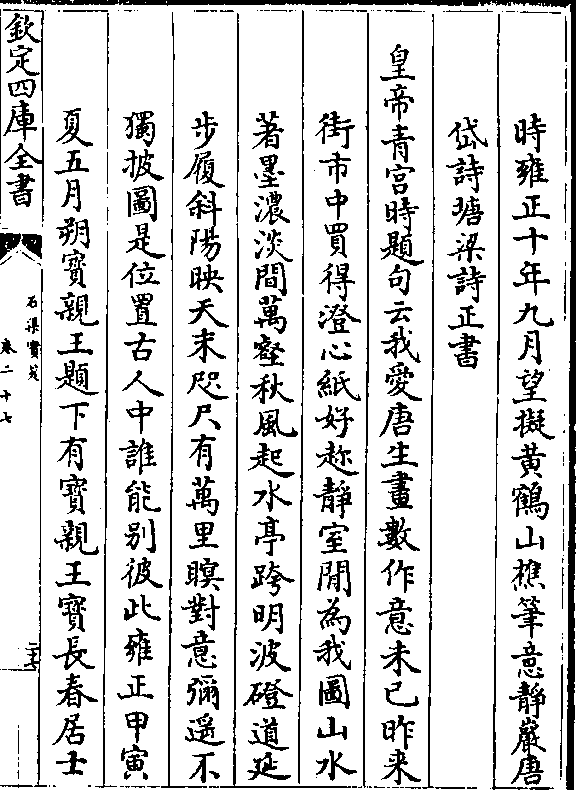 時雍正十年九月望擬黃鶴山樵筆意靜巖唐
岱詩塘梁詩正書
皇帝青宮時題句云我愛唐生畫數作意未已昨来
街市中買得澄心紙好趂靜室閒為我圖山水
著墨濃淡間萬壑秋風起水亭跨明波磴道延
步履斜陽映天末咫尺有萬里瞑對意彌遥不
獨披圖是位置古人中誰能别彼此雍正甲寅
夏五月朔寳親王題下有寳親王寳長春居士
欽定四庫全書
石渠寳笈
卷二十七
二十七